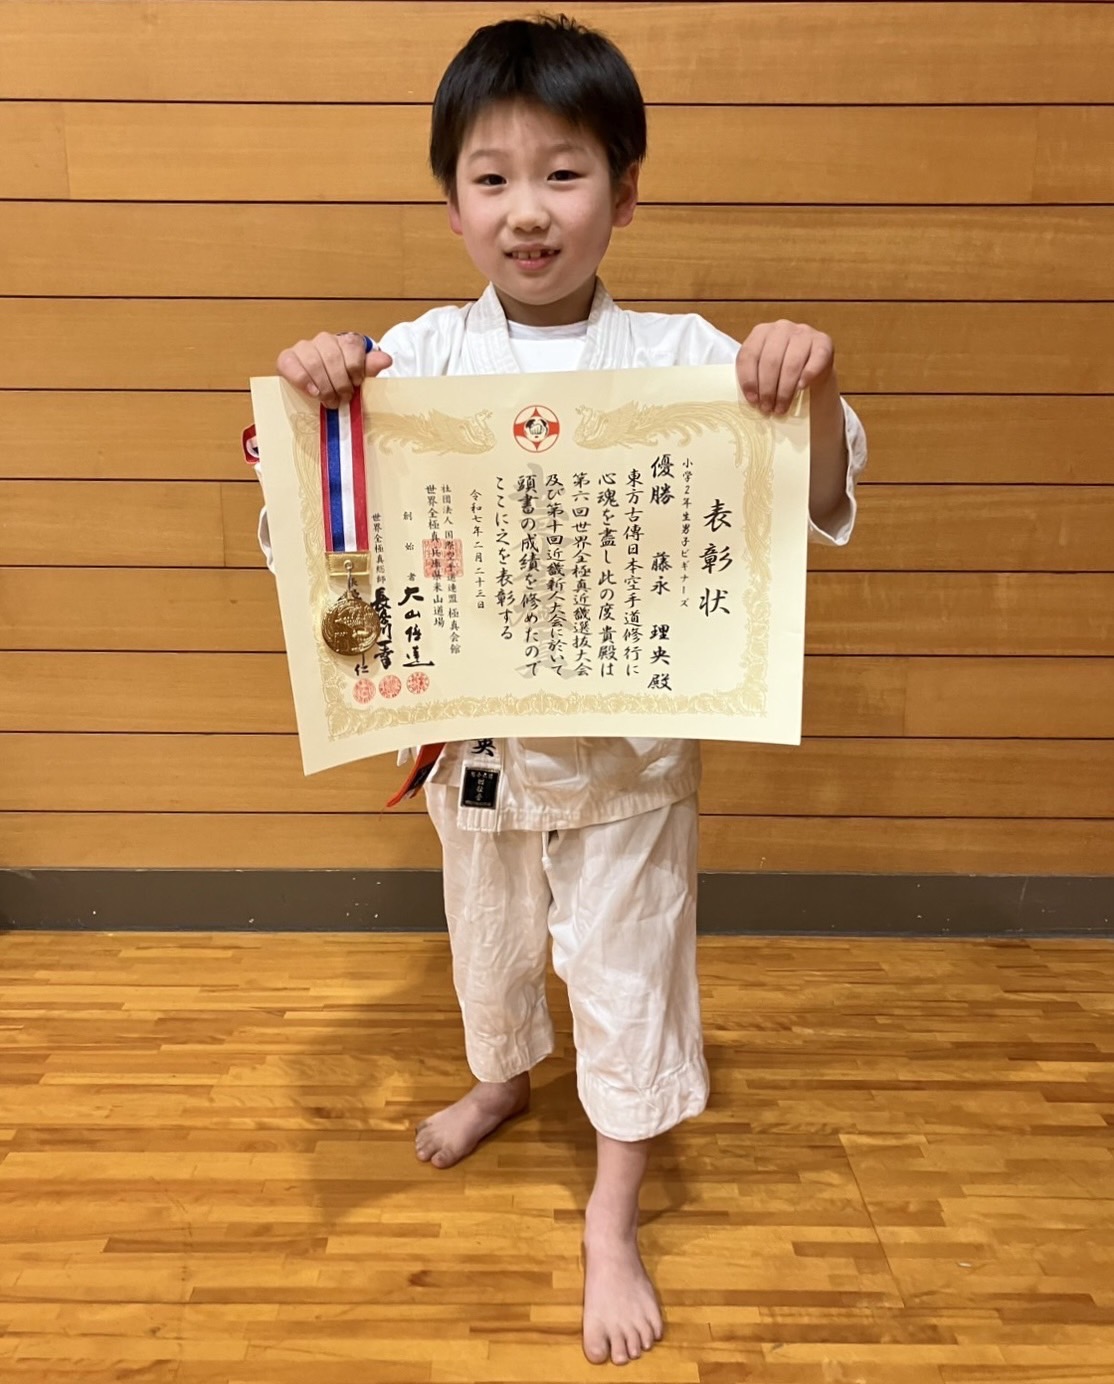 表彰状
小学2年生男子ビギナーズ
優勝 藤永 理央 殿
東方古傳日本空手道修行に
心魂を盡し此の度貴殿は
第六回世界全極真近畿選抜大会
及び第十回近畿新人大会に於いて
頭書の成績を修めたので
ここに之を表彰する
令和七年二月二十三日
社団法人 国際空手道連盟 極真会館
世界全極真 兵庫県米山道場
創始者 大山倍達
世界全極真総師
仁
英